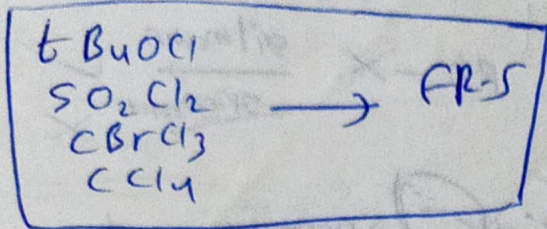 t BuOCl
SO₂Cl₂ ⟶ FR-S
CBrCl₃
CCl₄